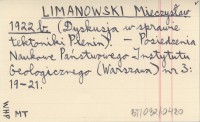 LIMANOWSKI Mieczysław
1922 b. (Dyskusja w sprawie
tektoniki Pienin). – Posiedzenia
Naukowe Państwowego Instytutu
Geologicznego (Warszawa) nr 3:
19-21.
WHP
MT
BT/032/0420